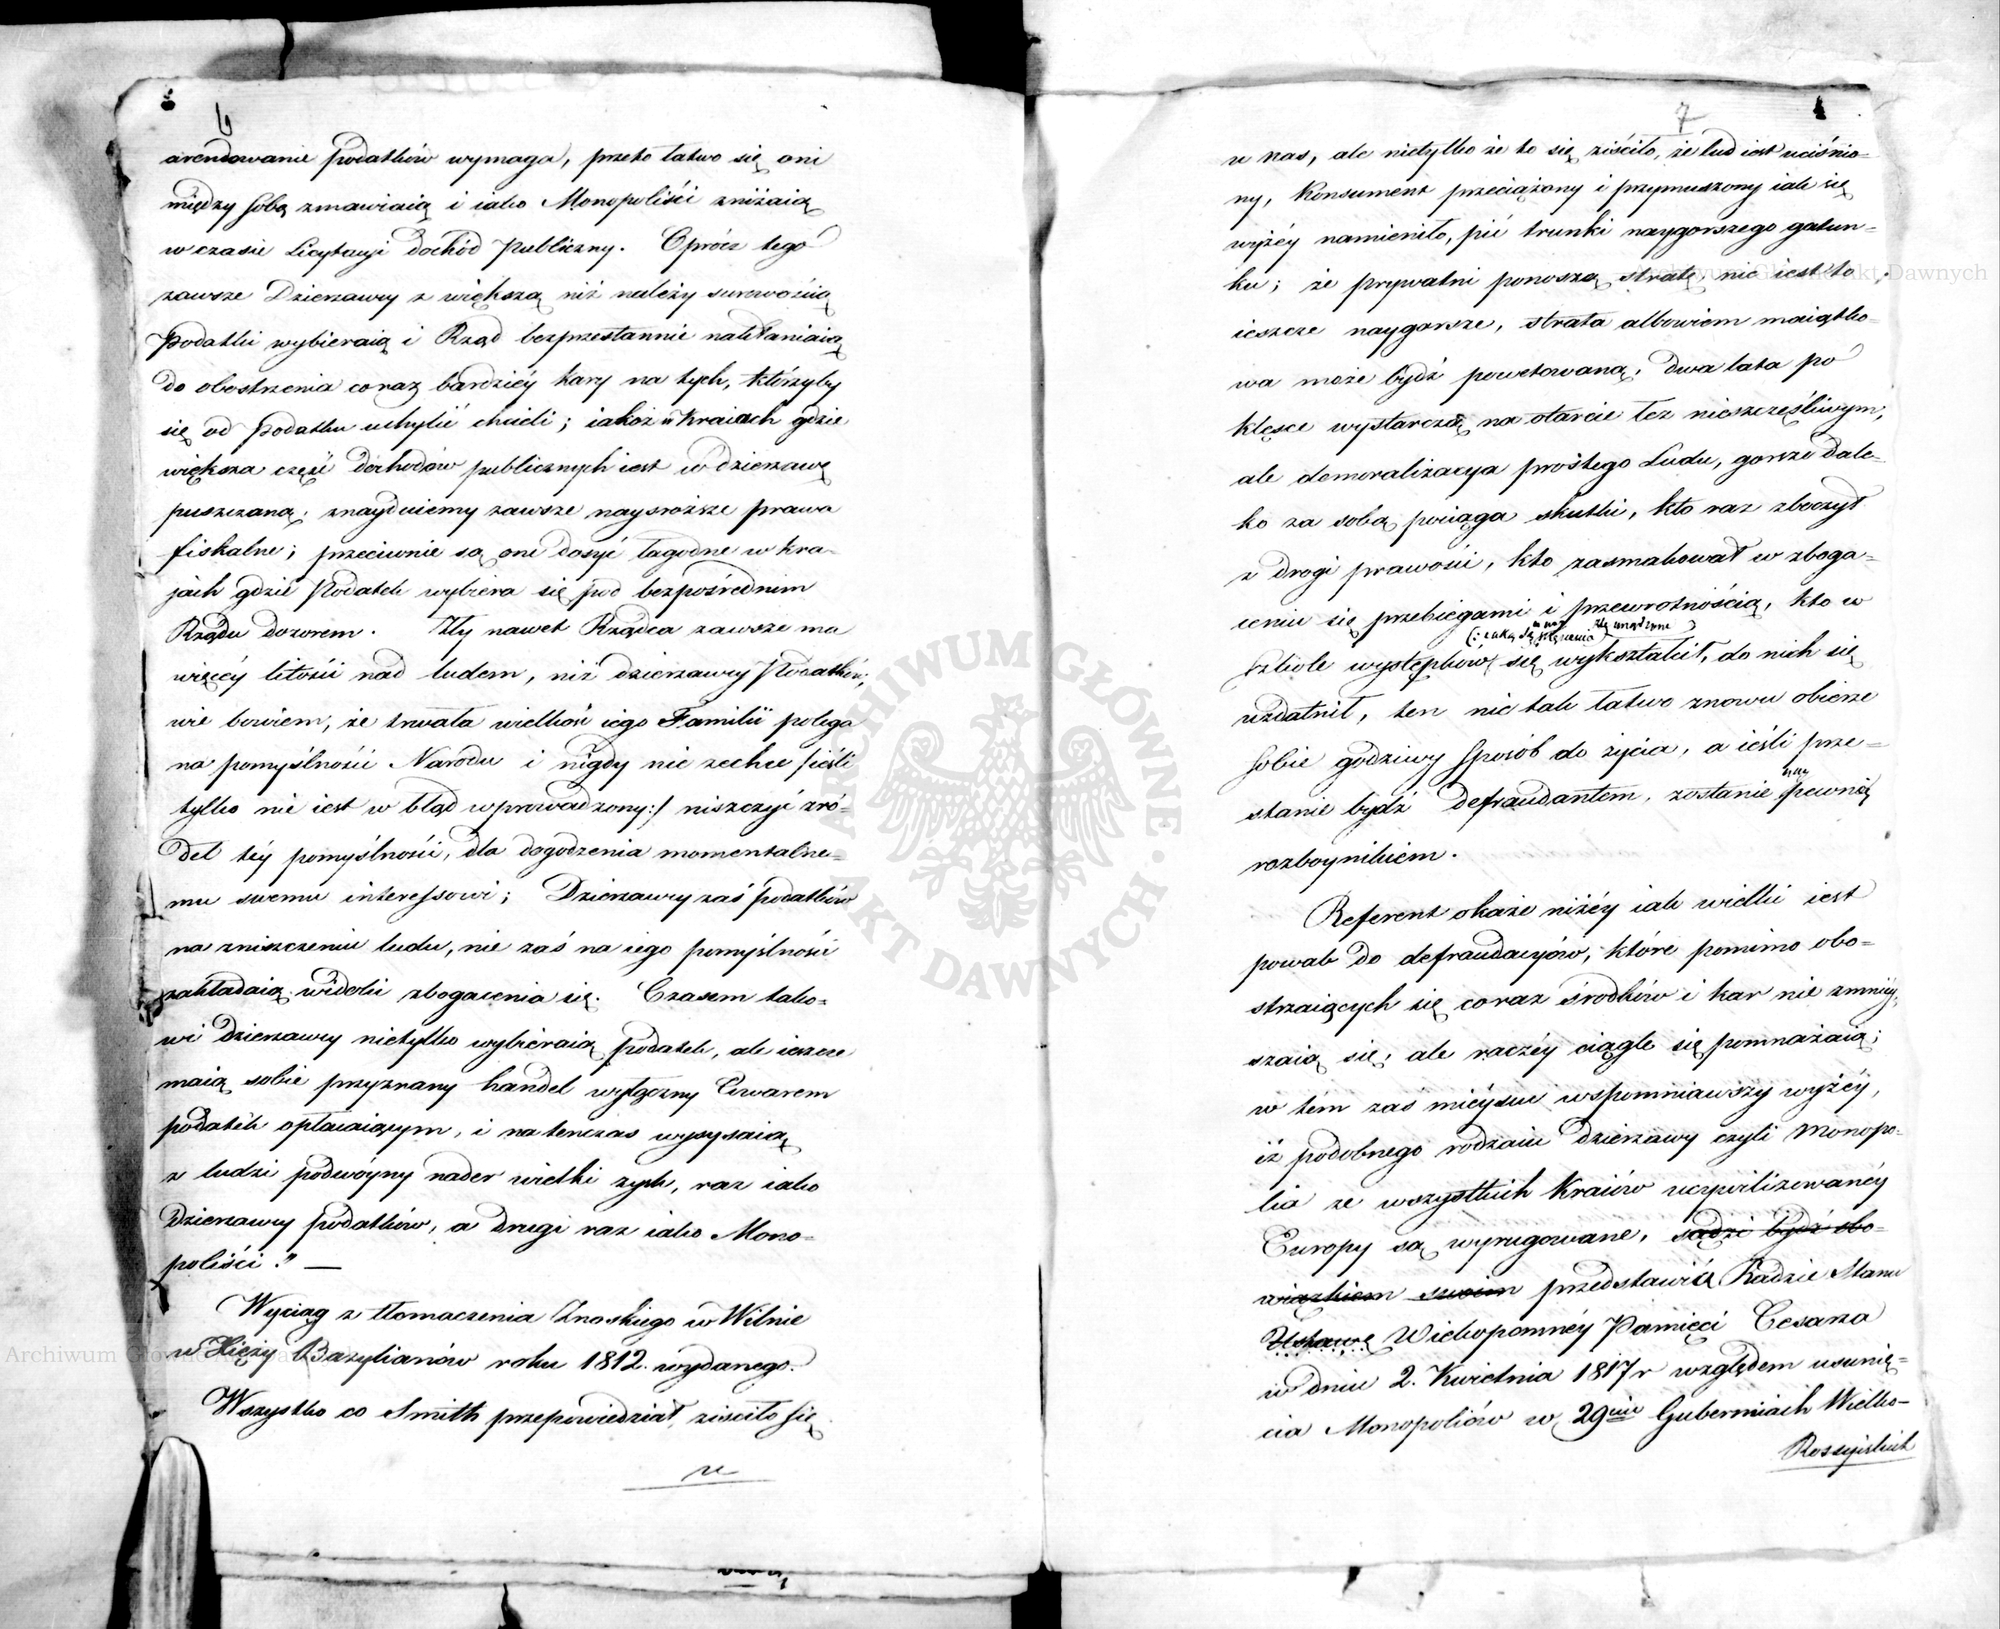 6
arendowanie podatków wymaga, przeto łatwo się oni
między sobą zmawiaią i iako Monopoliści zniżaią
w czasie Licytacyi dochód publiczny. Oprócz tego
zawsze Dzierzawcy z większą niż należy surowością
podatki wybieraią i Rząd bezprzestannie nakłaniaią
do obostrzenia coraz bardziéy kary na tych, którzyby
się od podatku uchylić chcieli; iakoż w kraiach gdzie
większa część dochodów publicznych iest w dzierzawę
puszczaną, znayduiemy zawsze naysroższe prawa
fiskalne; przeciwnie są one dosyć łagodne w kra-
jach gdzie Podatek wybiera się pod bezpośrednim
Rządu dozorem. Zły nawet Rządca zawsze ma
więcéy litości nad ludem, niż dzierzawcy Podatków,
wie bowiem, że trwała wielkość iego Familii polega
na pomyślności Narodu i nigdy nie zechce /ieśli
tylko nie iest w błąd wprowadzony:/ niszczyć źró-
deł téy pomyślności, dla dogodzenia momentalne-
mu swemu interessowi; Dzierzawcy zaś podatków
na zniszczeniu ludu, nie zaś na iego pomyślności
zakładaią widoki zbogacenia się. Czasem tako-
wi dzierzawcy nietylko wybieraią podatek, ale ieszcze
maią sobie przyznany handel wyłączny Towarem
podatek opłacaiącym, i natenczas wysysaią
z ludzi podwóyny nader wielki zysk, raz iako
Dzierzawcy podatków, a drugi raz iako Mono-
poliści." —
Wyciąg z tłomaczenia Znoskiego w Wilnie
w Xięży Bazylianów roku 1812. wydanego.
Wszystko co Smith przepowiedział, ziściło się
u
7
u nas, ale nietylko że to się ziściło, że lud iest uciśnio-
ny, Konsument przeciążony i przymuszony iak się
wyżéy namieniło, pić trunki naygorszego gatun-
ku; że prywatni ponoszą stratę, nie iest to
ieszcze naygorsze, strata albowiem maiątko-
wa może bydź powetowaną, dwa lata po
klęsce wystarczą na otarcie łez nieszczęśliwym,
ale demoralizacya prostego Ludu, gorsze dale-
ko za sobą pociąga skutki, kto raz zboczył
z drogi prawości, kto zasmakował w zboga-
ceniu się przebiegami i przewrotnością, kto w
szkole występków się wykształcił, do nich się
uzdatnił, ten nie tak łatwo znowu obierze
sobie godziwy sposób do życia, a ieśli prze-
stanie bydź defraudantem, zostanie nay pewniéy
rozboynikiem.
Referent okaże niżéy iak wielki iest
powab do defraudacyów, które pomimo obo-
strzaiących się coraz środków i kar nie zmniéy-
szaią się, ale raczéy ciągle się pomnażaią;
w tém zaś mieyscu wspomniawszy wyżéy,
iż podobnego rodzaiu dzierzawy czyli Monopo-
lia ze wszystkich Kraiów ucywilizowanéy
Europy są wyrugowane, sądzi bydź obo-
wiązkiem swoim przedstawić Radzie Stanu
Ustawę Wiekopomnéy Pamięci Cesarza
w dniu 2. Kwietnia 1817 r względem usunię-
cia Monopoliów w 29ciu Guberniach Wielko-
Rossyiskich
ARCHIWUM GŁÓWNE AKT DAWNYCH